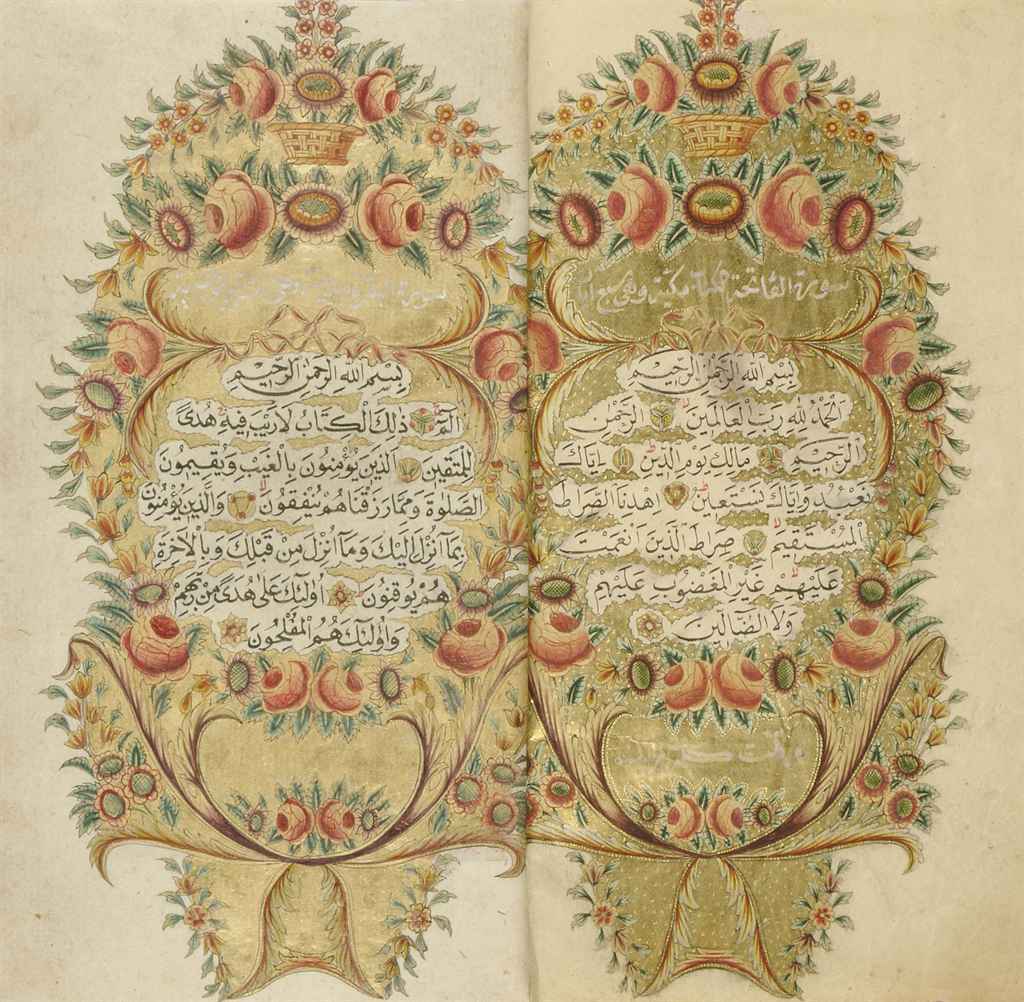 سورة الفاتحة مكية وهي سبع ايات
بِسْمِ اللهِ الرَّحْمٰنِ الرَّحِيمِ
اَلْحَمْدُ لِلّٰهِ رَبِّ الْعَالَمِينَ الرَّحْمٰنِ
الرَّحِيمِ مَالِكِ يَوْمِ الدِّينِ اِيَّاكَ
نَعْبُدُ وَاِيَّاكَ نَسْتَعِينُ اِهْدِنَا الصِّرَاطَ
الْمُسْتَقِيمَ صِرَاطَ الَّذِينَ اَنْعَمْتَ
عَلَيْهِمْ غَيْرِ الْمَغْضُوبِ عَلَيْهِمْ
وَلَا الضَّالِّينَ
سورة
بِسْمِ اللهِ الرَّحْمٰنِ الرَّحِيمِ
الٓمٓ ذٰلِكَ الْكِتَابُ لَا رَيْبَ فِيهِ هُدًى
لِلْمُتَّقِينَ اَلَّذِينَ يُؤْمِنُونَ بِالْغَيْبِ وَيُقِيمُونَ
الصَّلٰوةَ وَمِمَّا رَزَقْنَاهُمْ يُنْفِقُونَ وَالَّذِينَ يُؤْمِنُونَ
بِمَٓا اُنْزِلَ اِلَيْكَ وَمَٓا اُنْزِلَ مِنْ قَبْلِكَ وَبِالْاٰخِرَةِ
هُمْ يُوقِنُونَ اُولٰٓئِكَ عَلٰى هُدًى مِنْ رَبِّهِمْ
وَاُولٰٓئِكَ هُمُ الْمُفْلِحُونَ